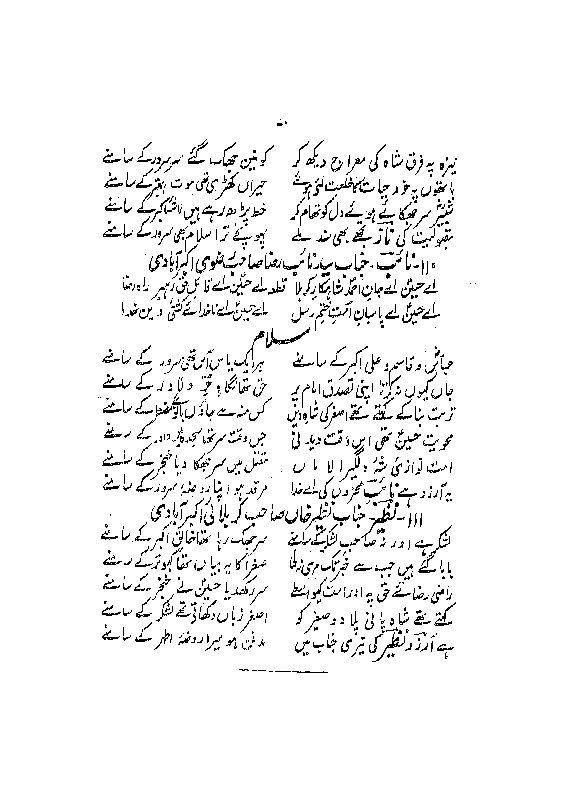 نیزہ پہ فرق شاہ کی معراج دیکھ کر کونین جھک گئے سر سرور کے سامنے
ہاتھوں پہ خود حیات کا خلعت لئے ہوئے حیراں کھڑی تھی موت بہتر کے سامنے
سر جھکائے ہوئے دل کو تھام کر خط پڑھ رہے ہیں لاشۂ اکبر کے سامنے
مقبولیت کی ناز مجھے بھی سند ملے ہو پیش ترا سلام بھی سرور کے سامنے
۱۱۰۔ نائب۔ جناب سید نائب رضا صاحب رضوی اکبرآبادی
اے حسین اے جان احمد شاہکار کربلا قطعہ اے حسین اے قائل حق رہبر راہ رضا
اے حسین اے پاسبان امت ختم رسل اے حسین اے ناخدائے کشتی دین خدا
سلام
عباس و قاسم و علی اکبر کے سامنے ہر ایک پاس آس تھی سرور کے سامنے
جاں کیوں نہ کرتا اپنی تصدق امام پر حق تھا نگاہ حر دلاور کے سامنے
تربت بنا کے کہتے تھے اصغر کی شاہ دیں کس منہ سے جاؤں بانوئے مضطر کے سامنے
محویت حسین تھی اس وقت دیدنی جس وقت سر تھا سجدہ میں داور کے سامنے
امت نوازی شہ دلگیر الاماں مقتل میں سر جھکا دیا خنجر کے سامنے
یہ آرزو ہے نائب محزوں کی اے خدا مرقد ہو اپنا روضۂ سرور کے سامنے
۱۱۱۔ نظیر۔ جناب نظیر خاں صاحب کربلائی اکبرآبادی
لشکر ہے اور نہ صاحب لشکر کے سامنے سر جھک رہا تھا خالق اکبر کے سامنے
بابا گئے ہیں جب سے خبر تک مری نہ لی صغرا کا یہ بیاں تھا کبوتر کے سامنے
راضی رضائے حق پہ اور امت کے واسطے سر رکھ دیا حسین نے خنجر کے سامنے
کہتے تھے شاہ پانی پلا دو صغیر کو اصغر زباں دکھاتے تھے لشکر کے سامنے
ہے آرزو نظیر کی تیری جناب میں مدفن ہو میرا روضۂ اطہر کے سامنے